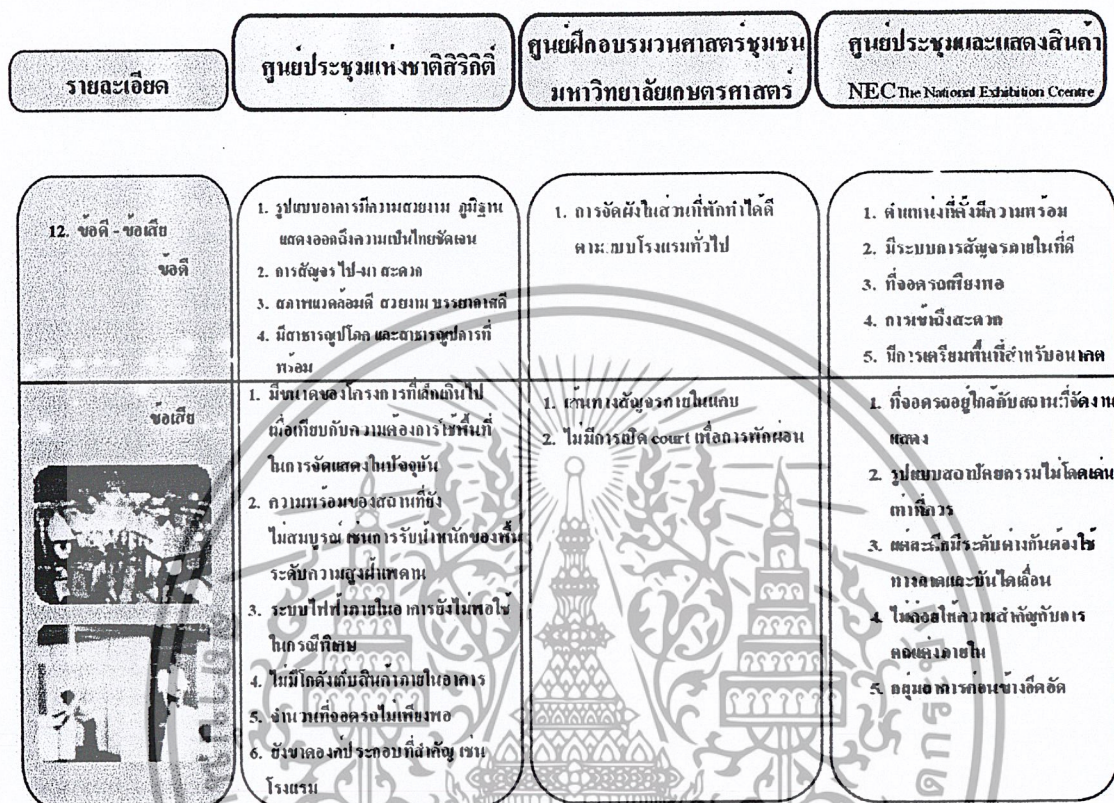 รายละเอียด
ศูนย์ประชุมแห่งชาติสิริกิติ์
ศูนย์ฝึกอบรมวนศาสตร์ชุมชน
มหาวิทยาลัยเกษตรศาสตร์
ศูนย์ประชุมและแสดงสินค้า
NEC The National Exhibition Ccentre
12. ข้อดี - ข้อเสีย
ข้อดี
1. รูปแบบอาคารมีความสวยงาม ภูมิฐาน
แสดงออกถึงความเป็นไทยชัดเจน
2. การสัญจร ไป-มา สะดวก
3. สภาพแวดล้อมดี สวยงาม บรรยากาศดี
4. มีสาธารณูปโภค และสาธารณูปการที่
พร้อม
1. การจัดผังในส่วนที่พักทำได้ดี
ตามแบบโรงแรมทั่วไป
1. ตำแหน่งที่ตั้งมีความพร้อม
2. มีระบบการสัญจรภายในที่ดี
3. ที่จอดรถเพียงพอ
4. การเข้าถึงสะดวก
5. มีการเตรียมพื้นที่สำหรับอนาคต
ข้อเสีย
1. มีขนาดของโครงการที่เล็กเกินไป
เมื่อเทียบกับความต้องการใช้พื้นที่
ในการจัดแสดงในปัจจุบัน
2. ความพร้อมของสถานที่ยัง
ไม่สมบูรณ์ เช่นการรับน้ำหนักของพื้น
ระดับความสูงฝ้าเพดาน
3. ระบบไฟฟ้าภายในอาคารยังไม่พอใช้
ในกรณีพิเศษ
4. ไม่มีโกดังเก็บสินค้าภายในอาคาร
5. จำนวนที่จอดรถไม่เพียงพอ
6. ยังขาดองค์ประกอบที่สำคัญ เช่น
โรงแรม
1. เส้นทางสัญจรภายในแคบ
2. ไม่มีการเปิด court เพื่อการพักผ่อน
1. ที่จอดรถอยู่ไกลกับสถานที่จัดงาน
แสดง
2. รูปแบบสถาปัตยกรรมไม่โดดเด่น
เท่าที่ควร
3. แต่ละตึกมีระดับต่างกันต้องใช้
ทางลาดและบันไดเลื่อน
4. ไม่ค่อยให้ความสำคัญกับการ
ตกแต่งภายใน
5. กลุ่มอาคารค่อนข้างอึดอัด